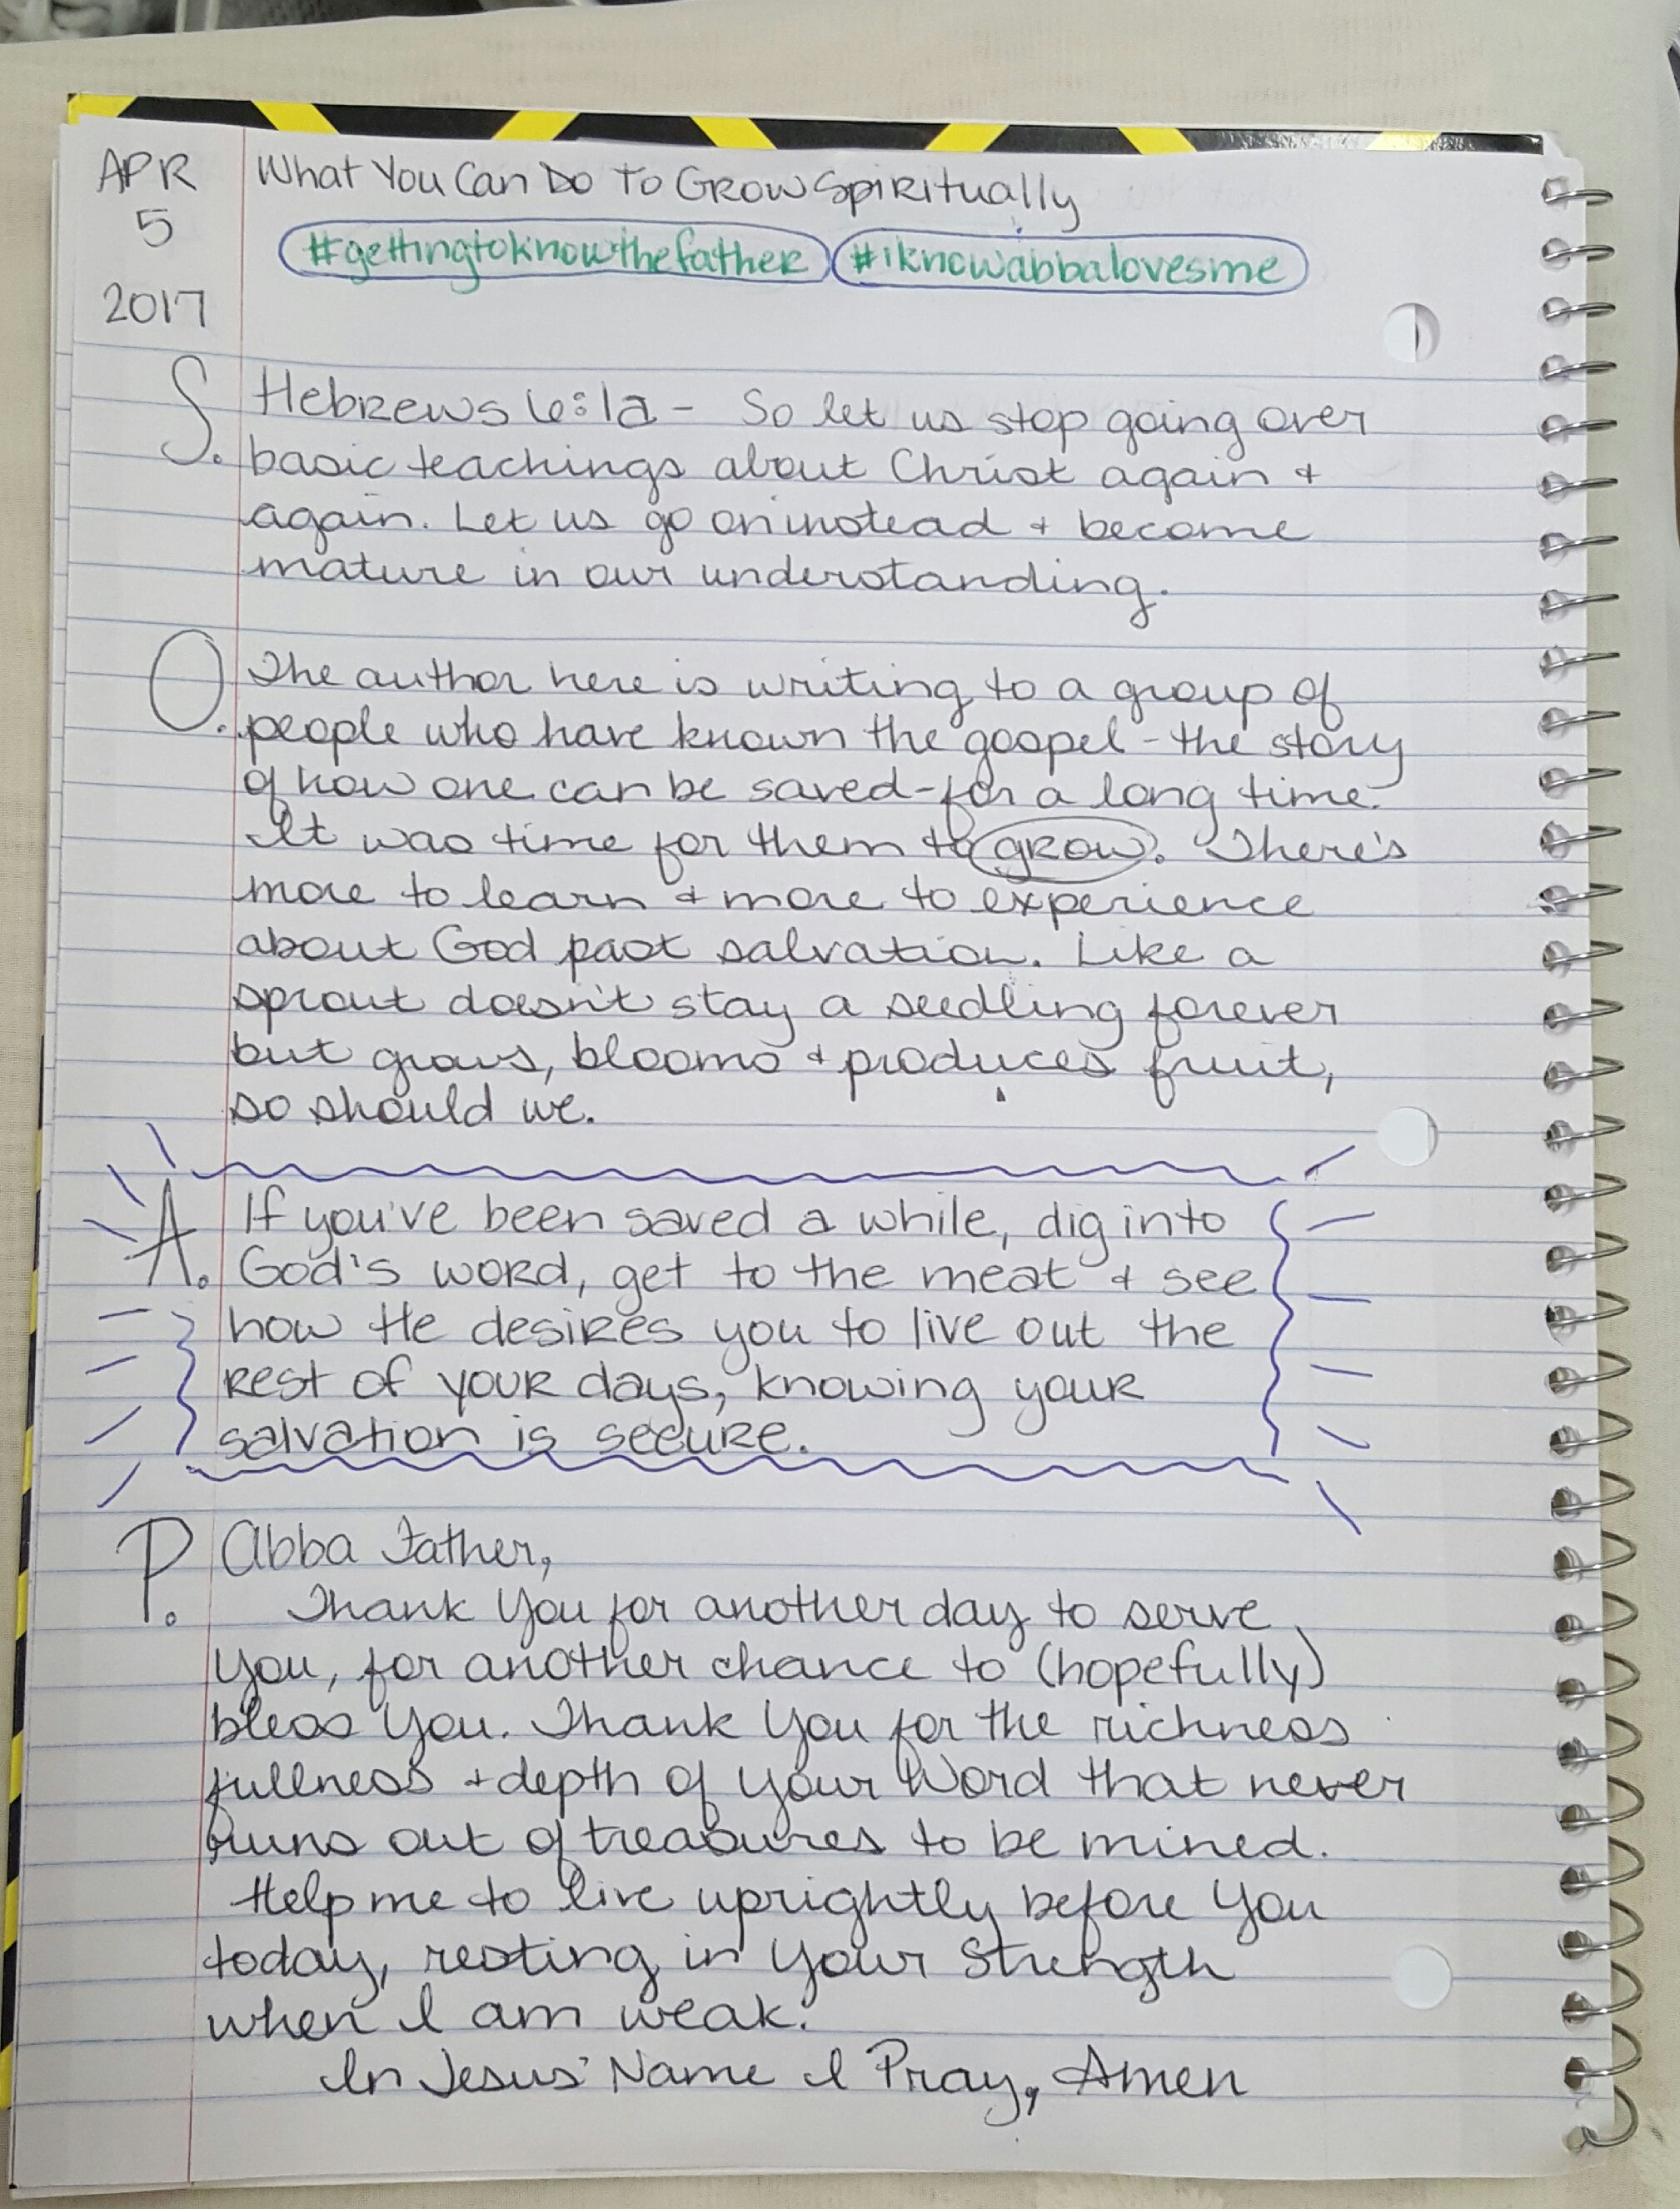 APR
5
2017
What You Can Do To Grow Spiritually
#gettingtoknowthefather #iknowabbalovesme
S. Hebrews 6:1a - So let us stop going over
basic teachings about Christ again +
again. Let us go on instead + become
mature in our understanding.
O. The author here is writing to a group of
people who have known the gospel - the story
of how one can be saved - for a long time.
It was time for them to grow. There's
more to learn + more to experience
about God past salvation. Like a
sprout doesn't stay a seedling forever
but grows, blooms + produces fruit,
so should we.
A. If you've been saved a while, dig into
God's word, get to the meat + see
how He desires you to live out the
rest of your days, knowing your
salvation is secure.
P. Abba Father,
Thank You for another day to serve
You, for another chance to (hopefully)
bless You. Thank You for the richness
fullness + depth of Your Word that never
runs out of treasures to be mined.
Help me to live uprightly before You
today, resting in Your Strength
when I am weak.
In Jesus' Name I Pray, Amen